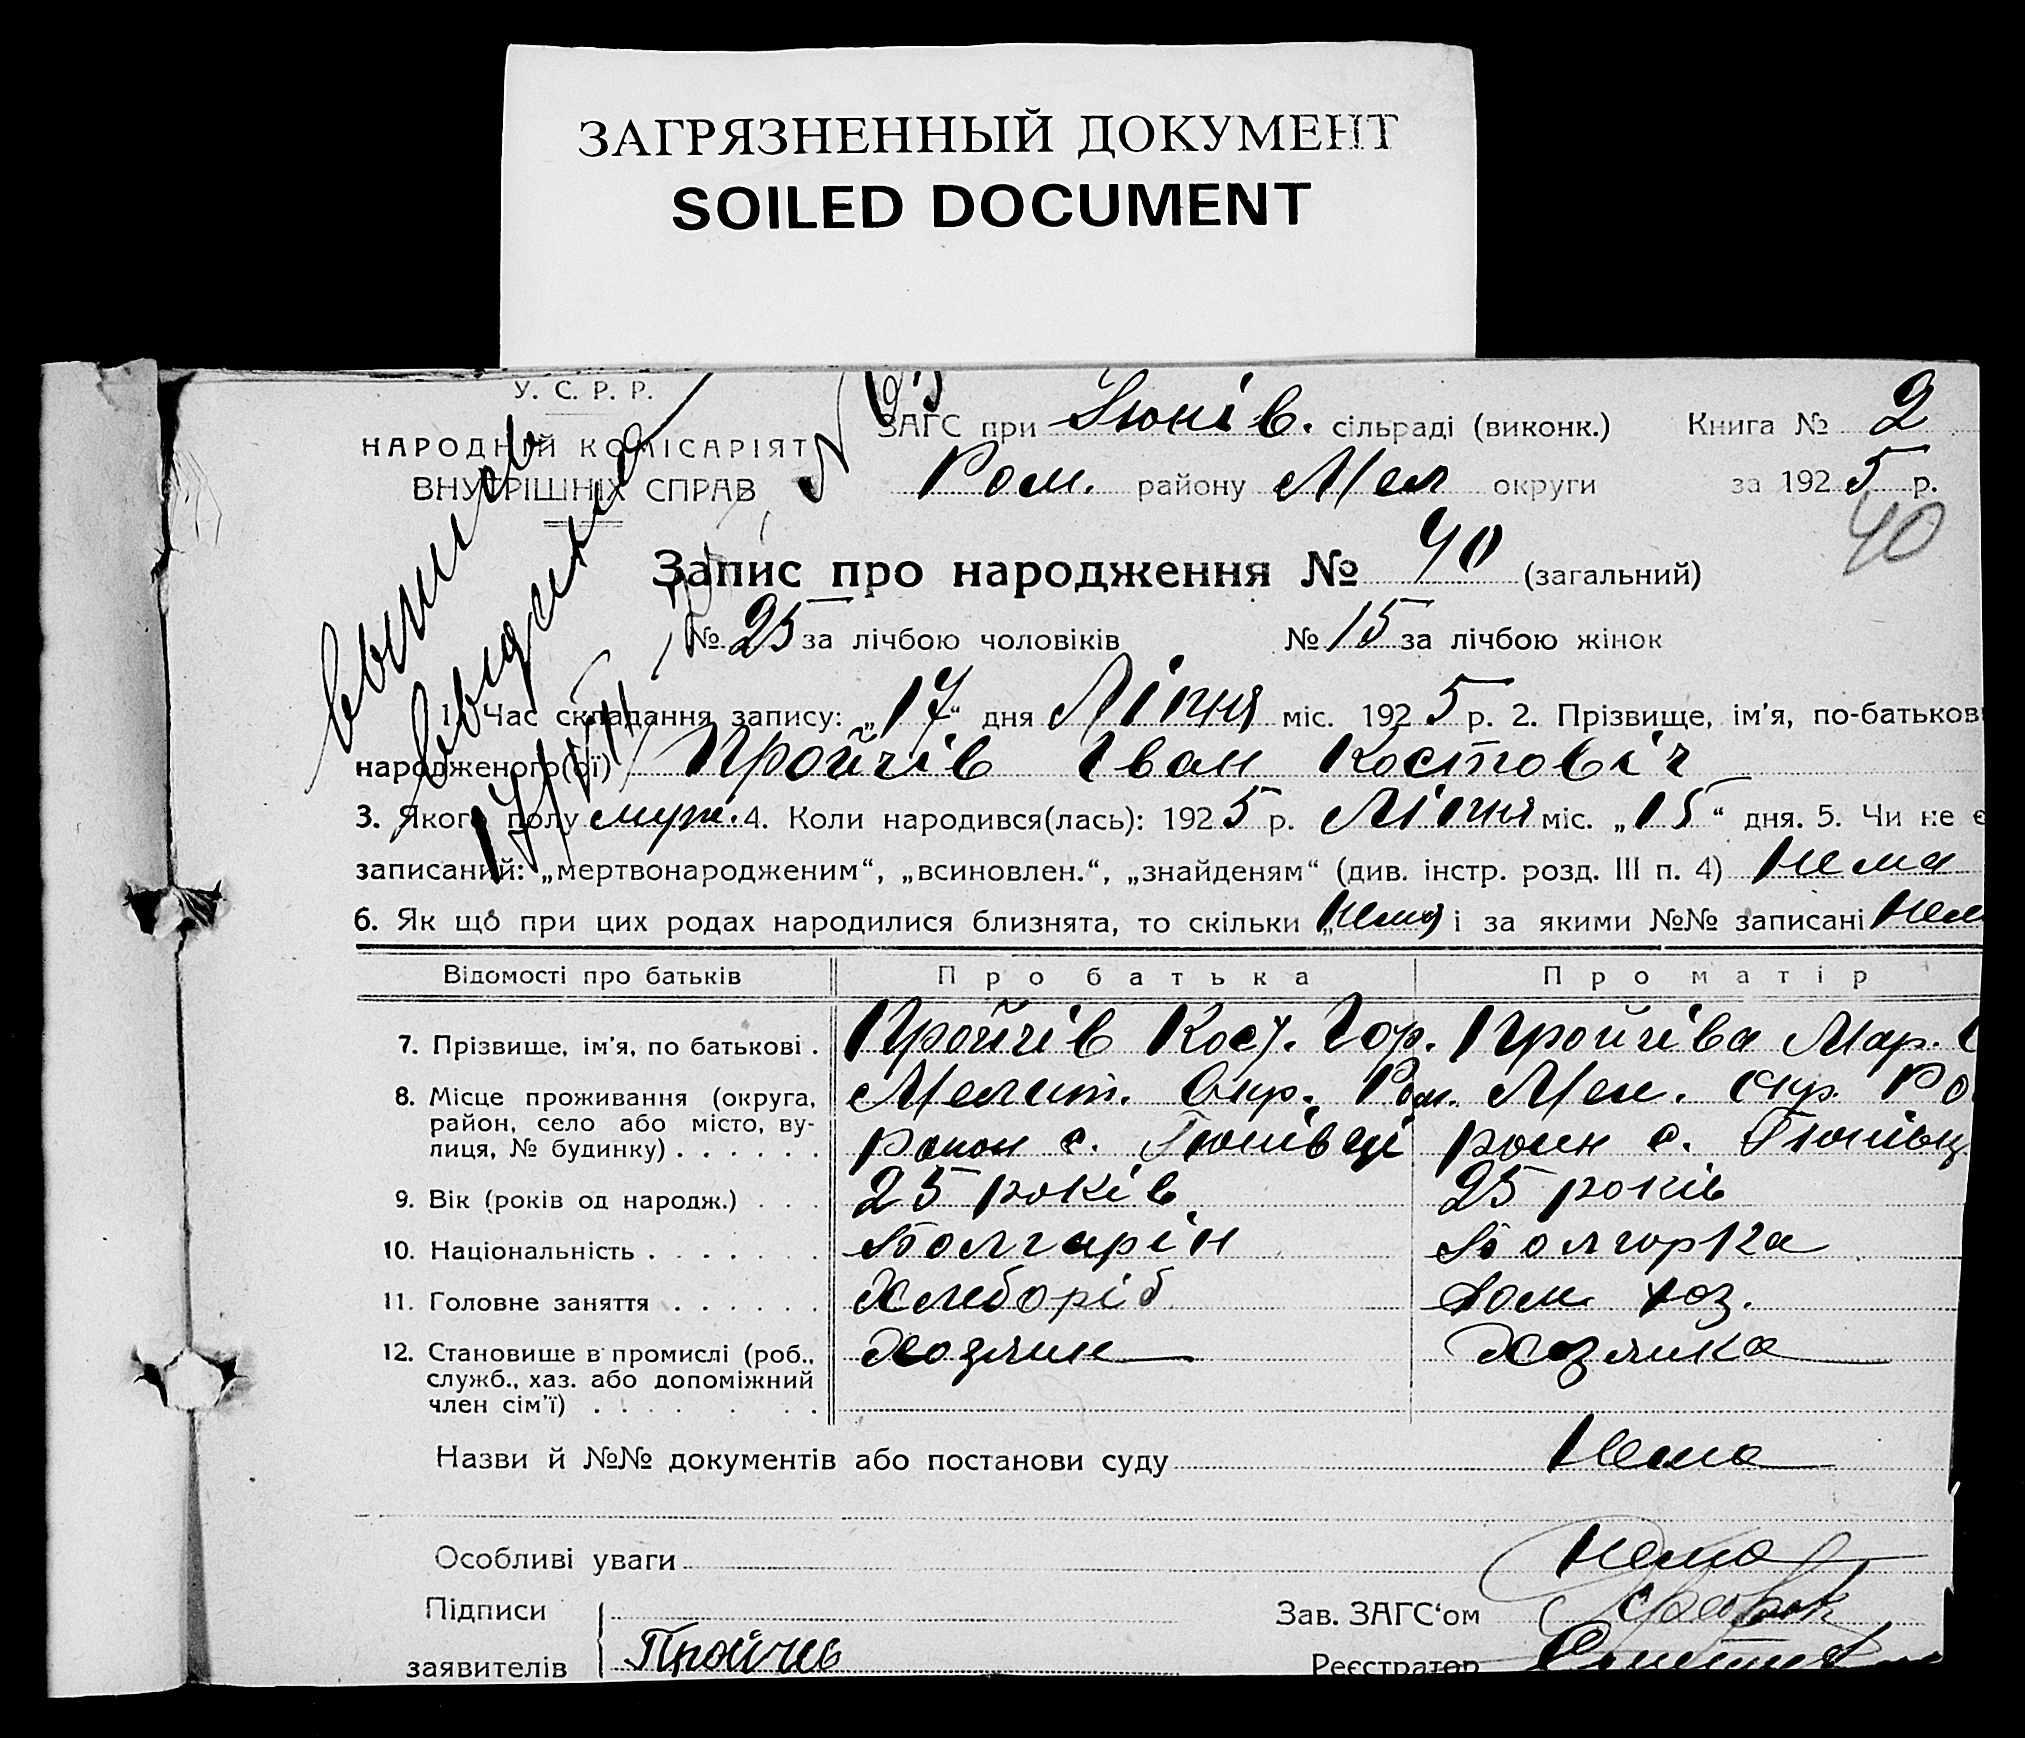 ЗАГРЯЗНЕННЫЙ ДОКУМЕНТ
SOILED DOCUMENT
У. С. Р. Р.
НАРОДНІЙ КОМІСАРІЯТ
ВНУТРІШНІХ СПРАВ
ЗАГС при Тюнів. сільраді (виконк.) Книга № 2
Ром. району Мел округи за 1925 р.
40
Запис про народження № 40 (загальний)
№ 25 за лічбою чоловіків № 15 за лічбою жінок
1. Час складання запису: „17“ дня Ліпня міс. 1925 р. 2. Прізвище, ім'я, по-батькові
народженого(ої) Пройчів Іван Костовіч
3. Якого полу муж. 4. Коли народився(лась): 1925 р. Ліпня міс. „15“ дня. 5. Чи не є
записаний: „мертвонародженим“, „всиновлен.“, „знайденям“ (див. інстр. розд. III п. 4) Нема
6. Як що при цих родах народилися близнята, то скільки „Нема і за якими №№ записані Нем
Відомості про батьків Про батька Про матір
7. Прізвище, ім'я, по батькові . Пройчів Кост. Гор. Пройчіва Мар.
8. Місце проживання (округа, Мелит. Окр. Ром. Мел. Окр. Ро
район, село або місто, ву- район с. Тюнівці роин с. Тюнівц
лиця, № будинку) . . . . . .
9. Вік (років од народж.) . . . 25 років 25 років
10. Національність . . . . . . Болгарін Болгорка
11. Головне заняття . . . . . . Хлеборіб Дом хоз.
12. Становище в промислі (роб., Хозяин Хозяика
служб., хаз. або допоміжний
член сім'ї) . . . . . .
Назви й №№ документів або постанови суду Нема
Особливі уваги Нема
Підписи Зав. ЗАГС‘ом
заявителів Пройчев Реєстратор